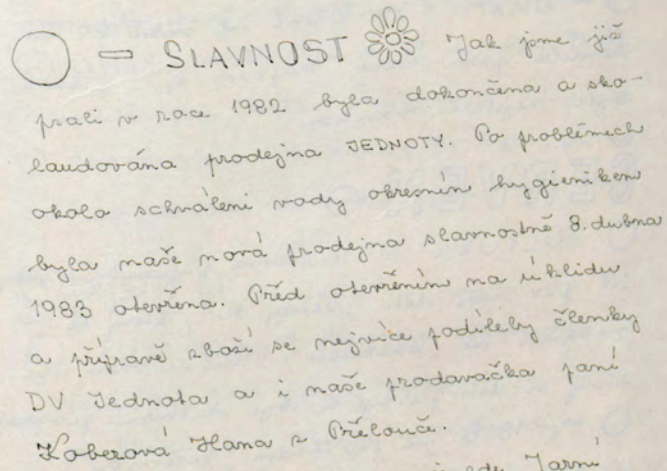 ○ = SLAVNOST Jak jsme již
psali v roce 1982 byla dokončena a sko-
laudována prodejna JEDNOTY. Po problémech
okolo schválení vody okresním hygienikem
byla naše nová prodejna slavnostně 8. dubna
1983 otevřena. Před otevřením na úklidu
a přípravě zboží se nejvíce podílely členky
DV Jednota a i naše prodavačka paní
Koberová Hana z Přelouče.
Jarní